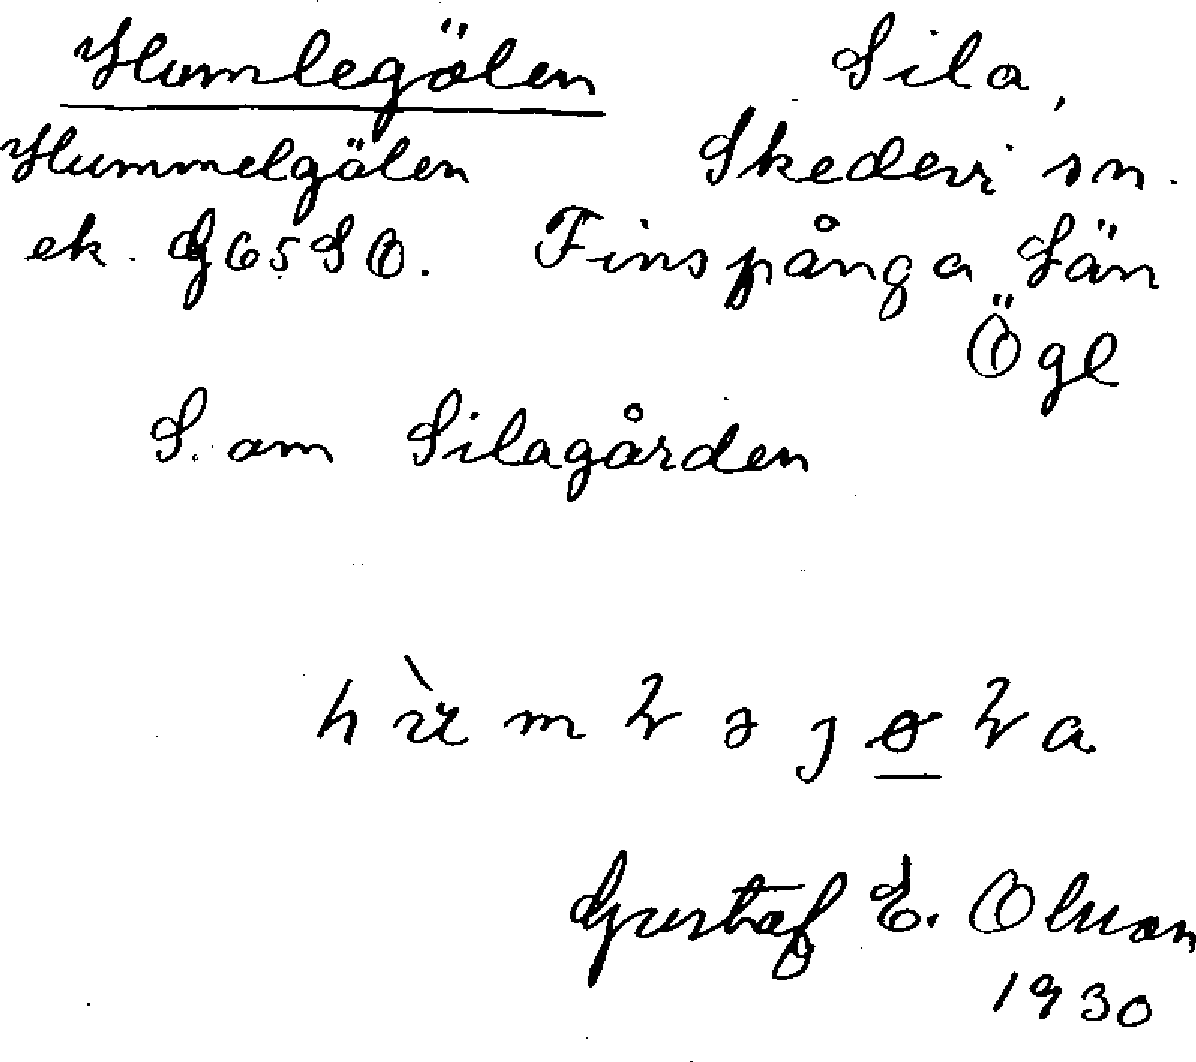 Humlegölen Sila,
Hummelgölen Skedevi sn.
ek. G65SO. Finspånga Län
Ögl
S. om Silagården
Gustaf E. Olsson
1930